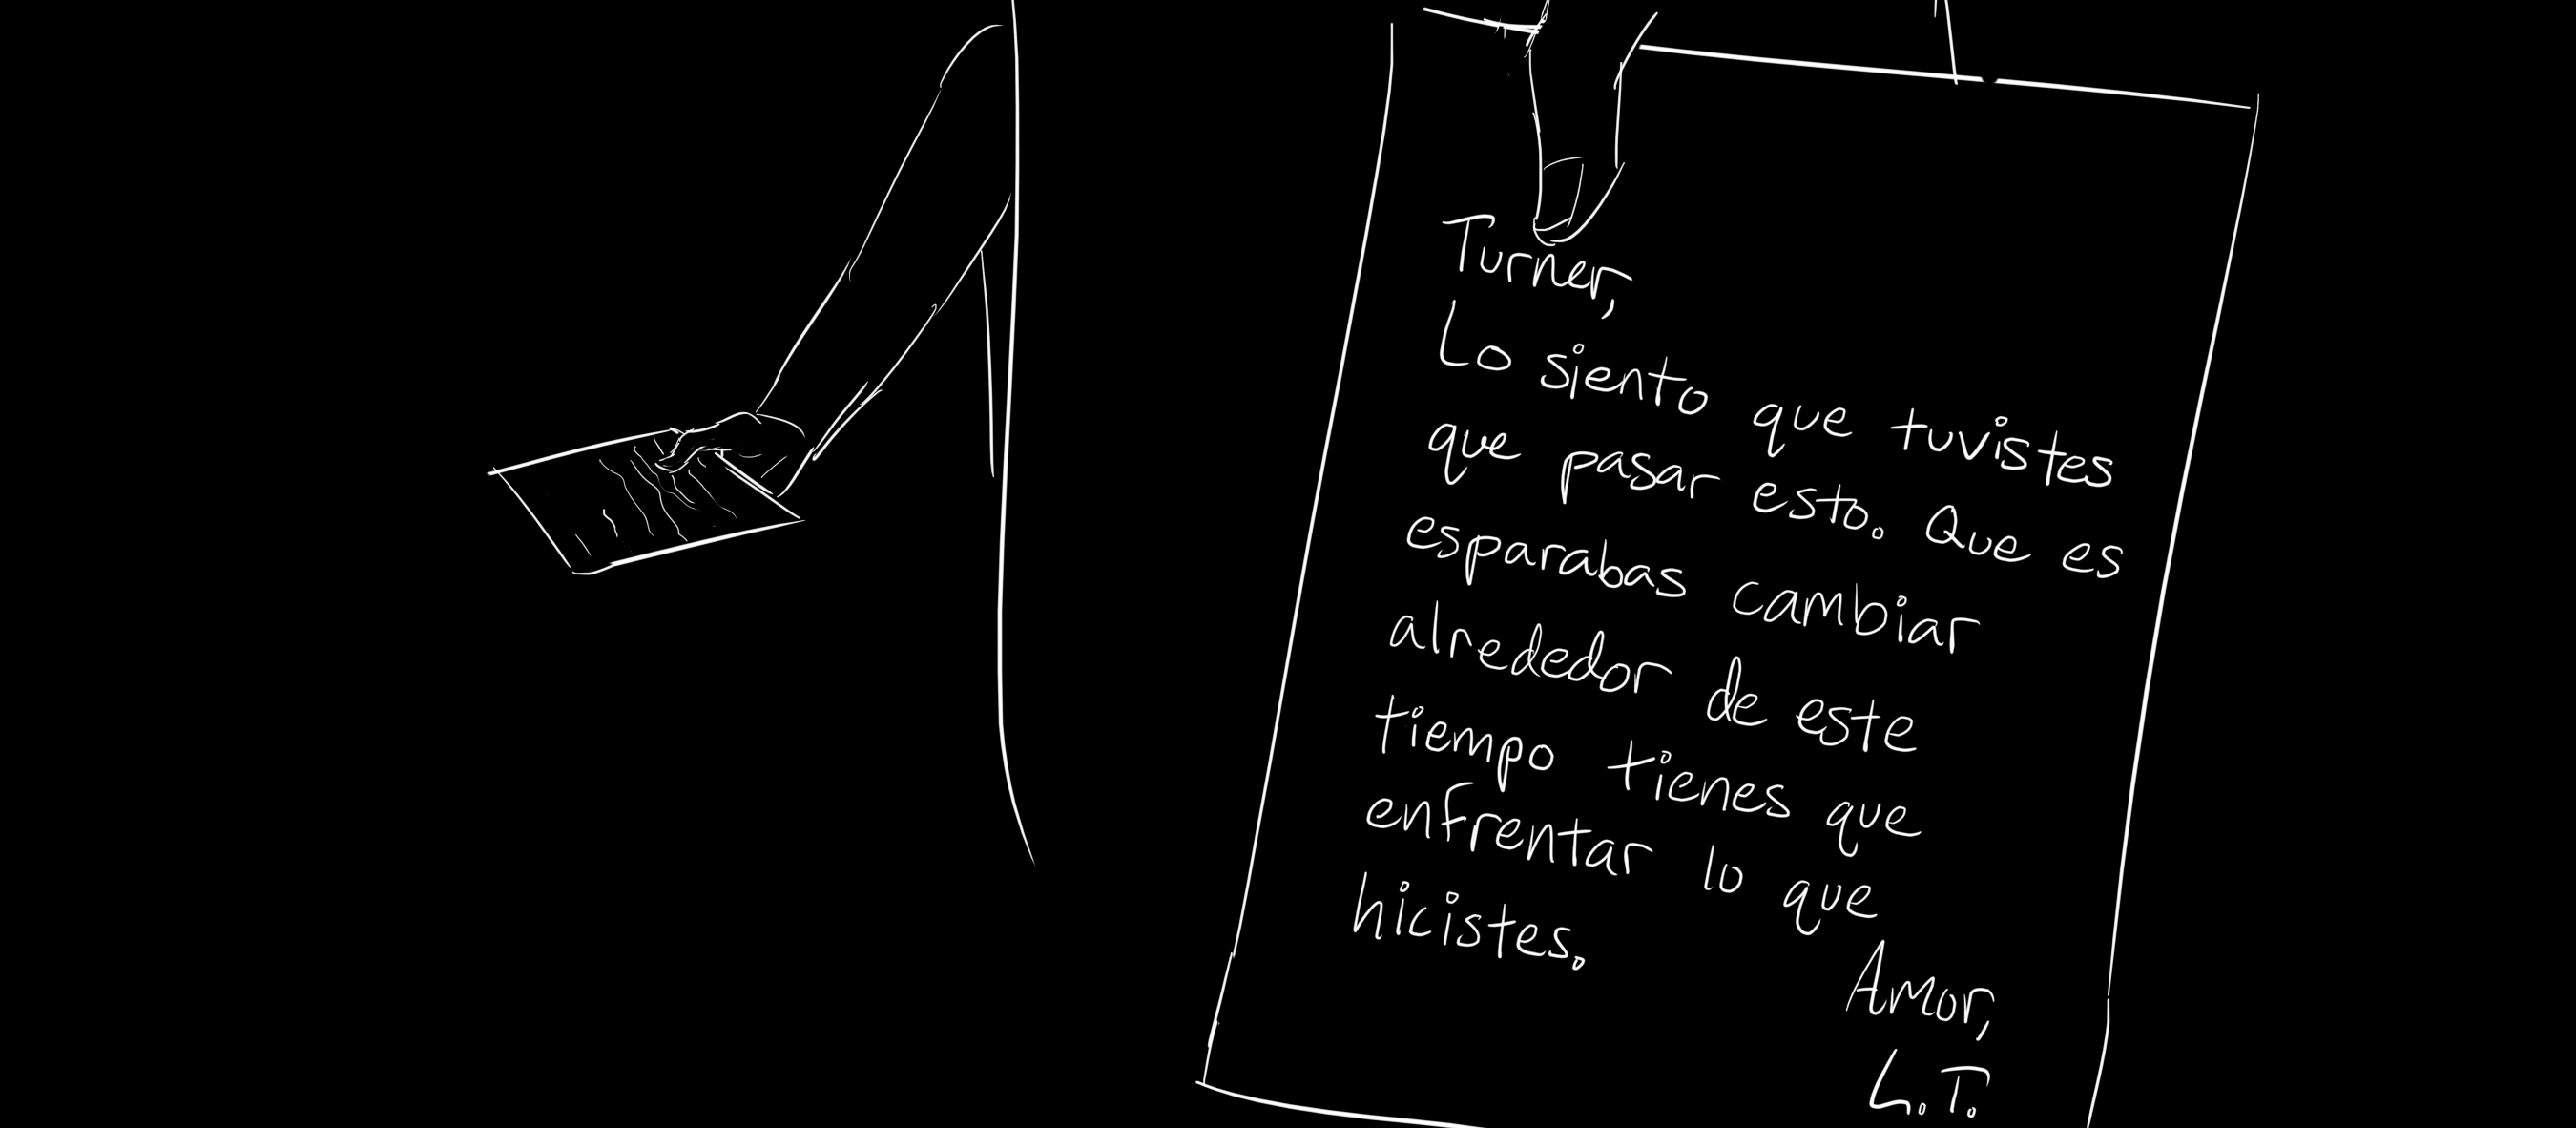 Turner,
Lo siento que tuvistes
que pasar esto. Que es
esparabas cambiar
alrededor de este
tiempo tienes que
enfrentar lo que
hicistes.
Amor,
L.T.